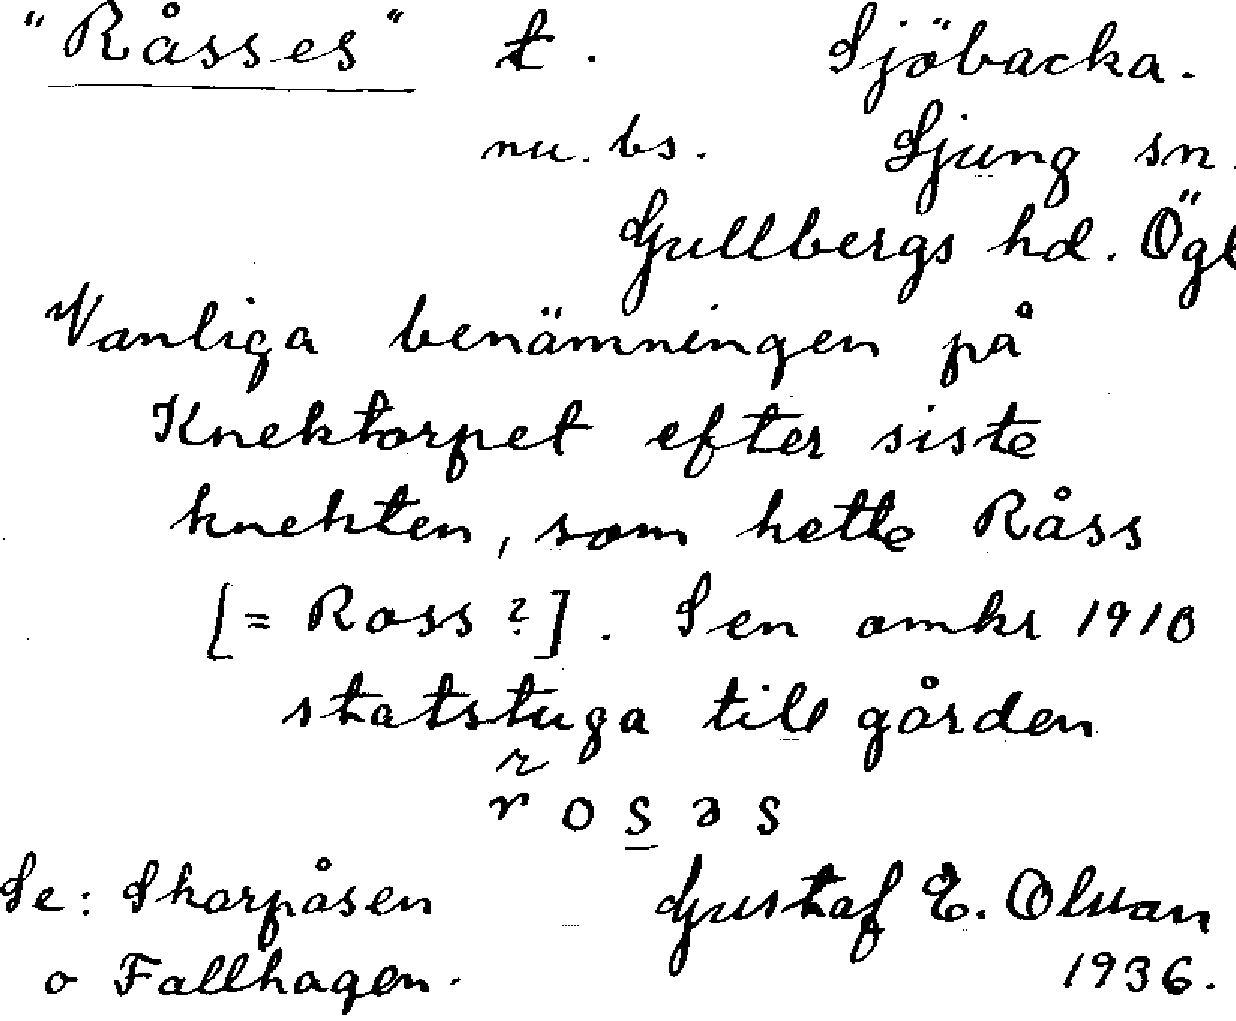 "Råsses" t. Sjöbacka.
nu. bs. Ljung sn.
Gullbergs hd. Ögl
Vanliga benämningen på
Knektorpet efter siste
knekten, som hette Råss
[= Ross ?]. Sen omkr 1910
statstuga till gården
r
r o s ə s
Se: Skarpåsen Gustaf E. Olson
o Fallhagen. 1936.